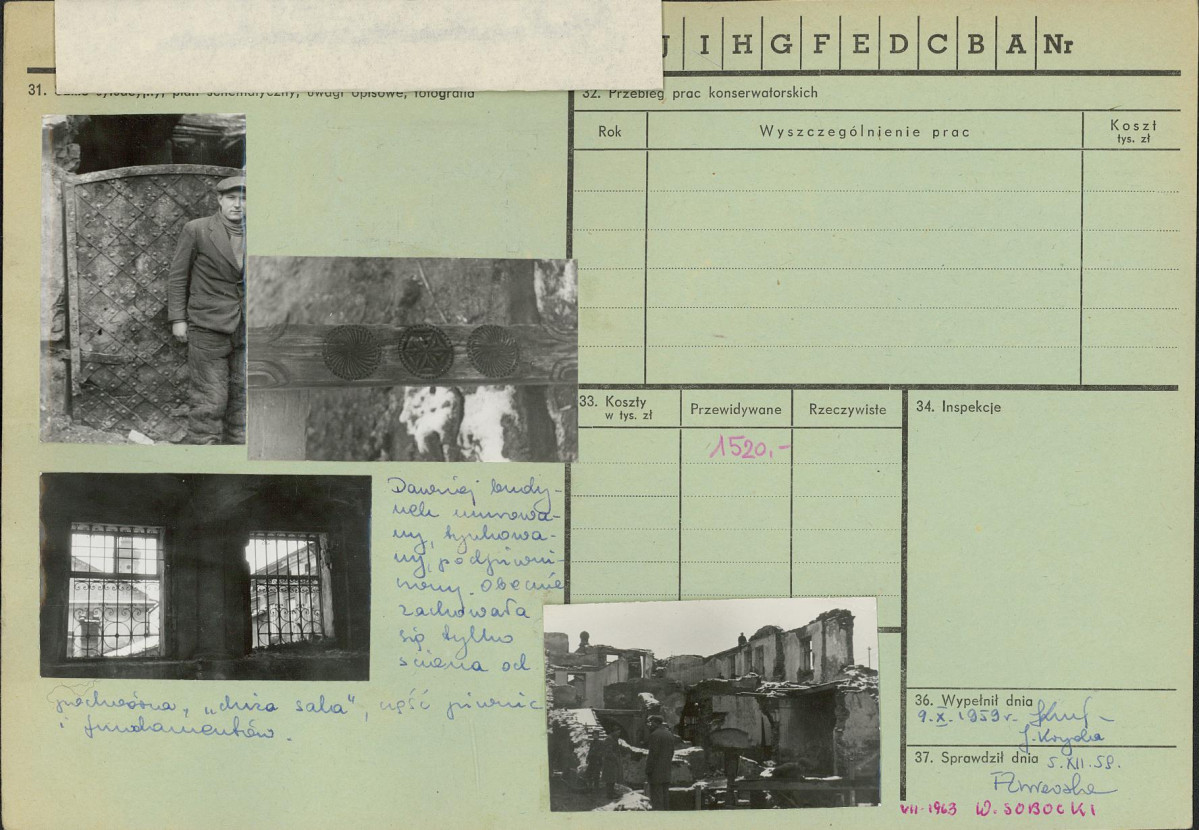 J I H G F E D C B A Nr
31. plan schematyczny, uwagi opisowe, fotografia
32. Przebieg prac konserwatorskich
Rok
Wyszczególnienie prac
Koszt
tys. zł
33. Koszty
w tys. zł
Przewidywane
Rzeczywiste
1520,-
34. Inspekcje
Dawniej budy-
nek murowa-
ny, tynkowa-
ny, podpiwni-
czony. Obecnie
zachowała
się tylko
ściana od
podwórza, „duża sala", część piwnic
i fundamentów.
36. Wypełnił dnia
9.X.1959r.
37. Sprawdził dnia 5.XII.59.
VII-1963 W. SOBOCKI